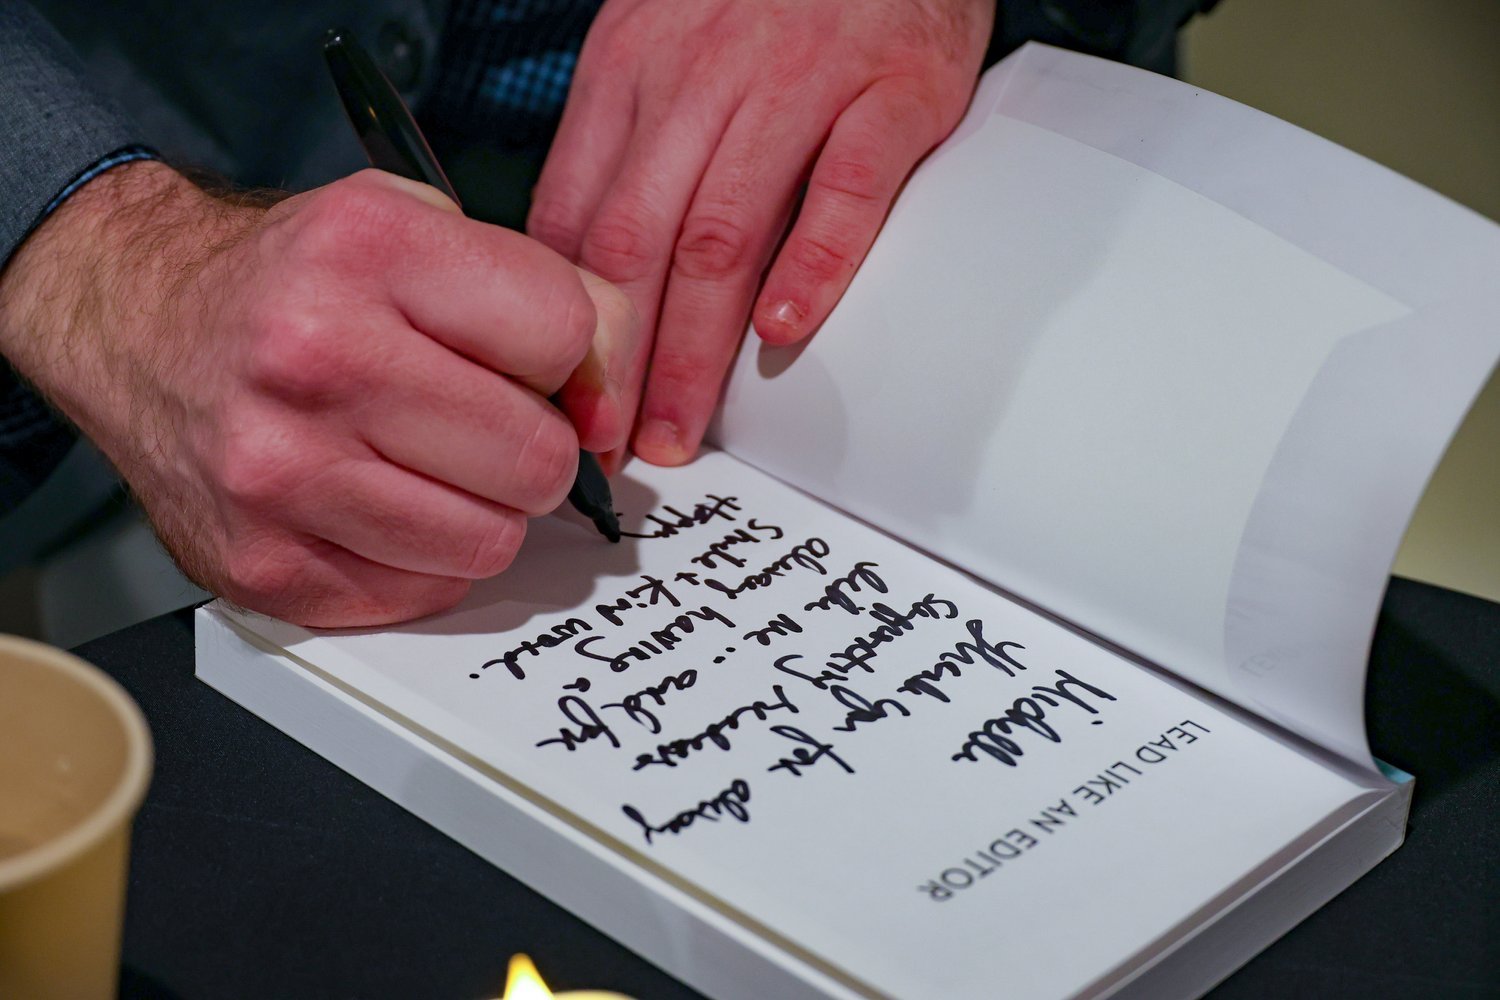 LEAD LIKE AN EDITOR
Michelle
Thank you for always
supporting readers
like me.. and for
always having a
smile + kind word.
Happy